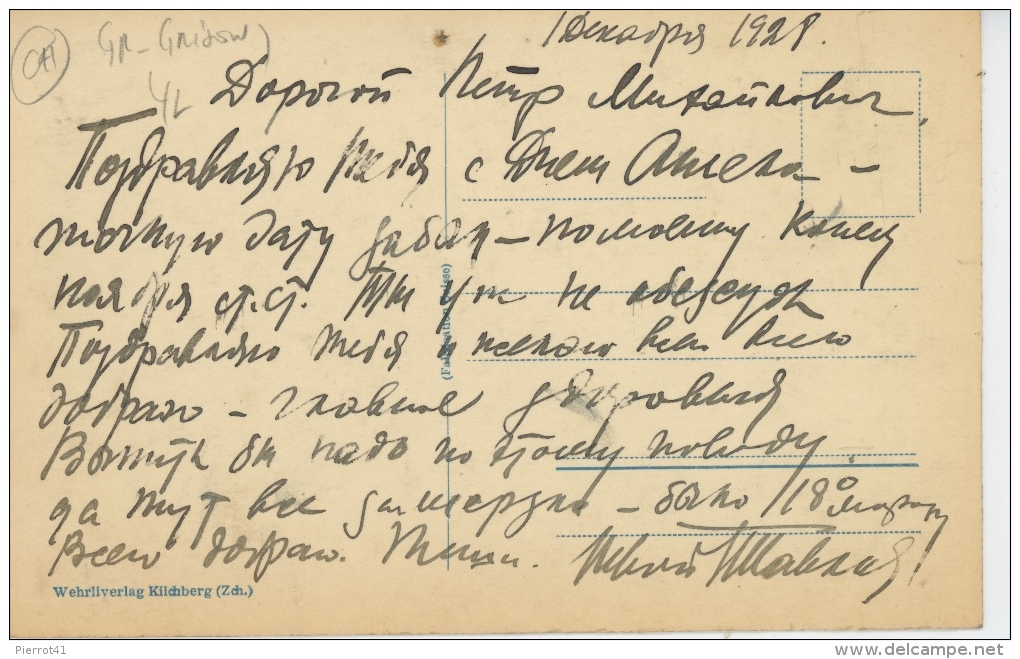 CH
GR-Gridow
4L
1 Декабря 1928.
Дорогой Петр Михайлович,
Поздравляю тебя с Днем Ангела –
точную дату забыл – по моему конец
ноября ст. ст. Ты уж не обессудь
Поздравляю тебя и желаю вам всего
доброго – главное здоровья
Выпить бы надо по этому поводу,
да тут все замерзло – было 18° мороза
Всего доброго. Пиши. Твой
(Fabrication Suisse)
Wehrliverlag Kilchberg (Zch.)
Pierrot41
delcampe.net